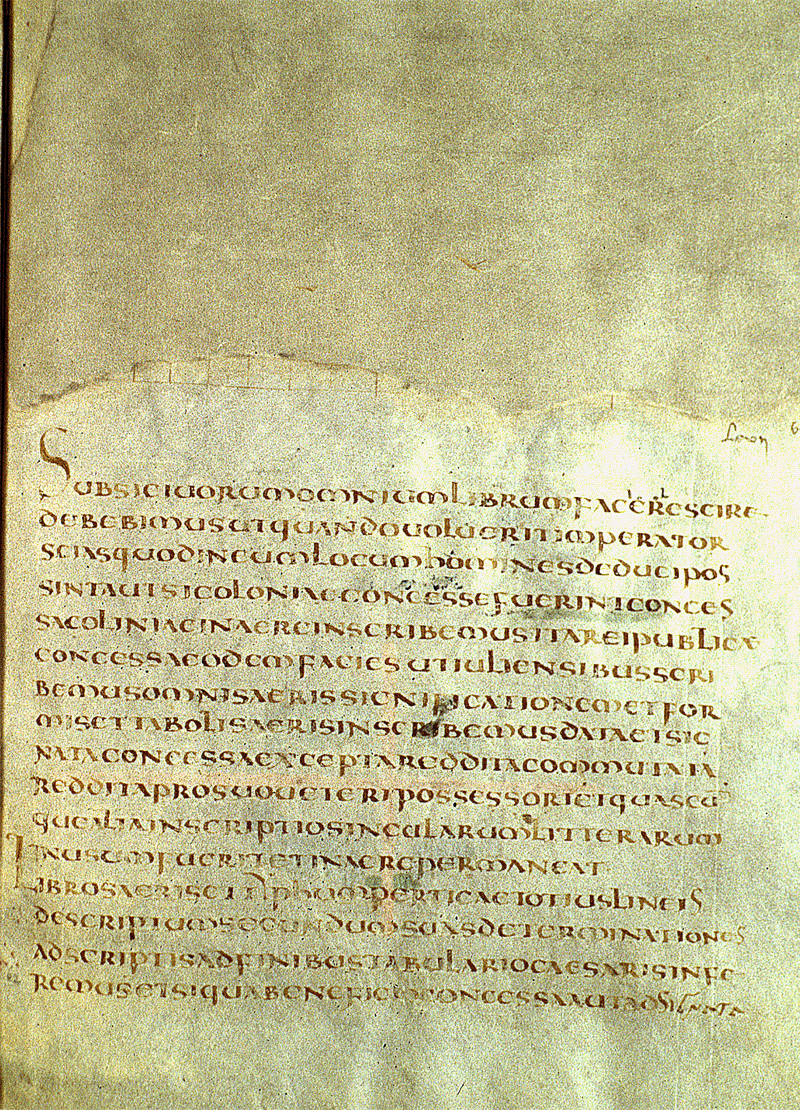 SUBSICIUORUMOMNIUMLIBRUMFACERESCIRE
DEBEBIMUSUTQUANDOUOLUERITIMPERATOR
SCIASQUODINEUMLOCUMHOMINESDEDUCIPOS
SINTAUTSICOLONIAECONCESSEFUERINTCONCES
SACOLINIAEINAEREINSCRIBEMUSITAREIPUBLICA
CONCESSAEODEMFACIESUTIULIENSIBUSSCRI
BEMUSOMNISAERISSIGNIFICATIONEMETFOR
MISETTABOLISAERISINSCRIBEMUSDATAETSIC
NATACONCESSAEXCEPTAREDDITACOMMUTATA
REDDITAPROSUOUETERIPOSSESSORIETQUASCU
QUEALIAINSCRIPTIOSINGULARUMLITTERARUM
INUSUMFUERITETINAEREPERMANEAT
LIBROSAERISETTYPUMPERTICAETOTIUSLINEIS
DESCRIPTUMSECUNDUMSUASDETERMINATIONES
ADSCRIPTISADFINIBUSTABULARIOCAESARISINFE
REMUSETSIQUABENEFICIOCONCESSAAUTADSIGNATA